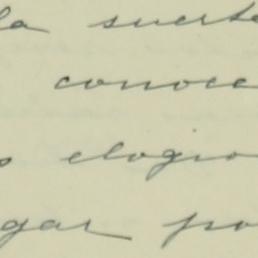 la suerte
conoce
s elogio
gar po